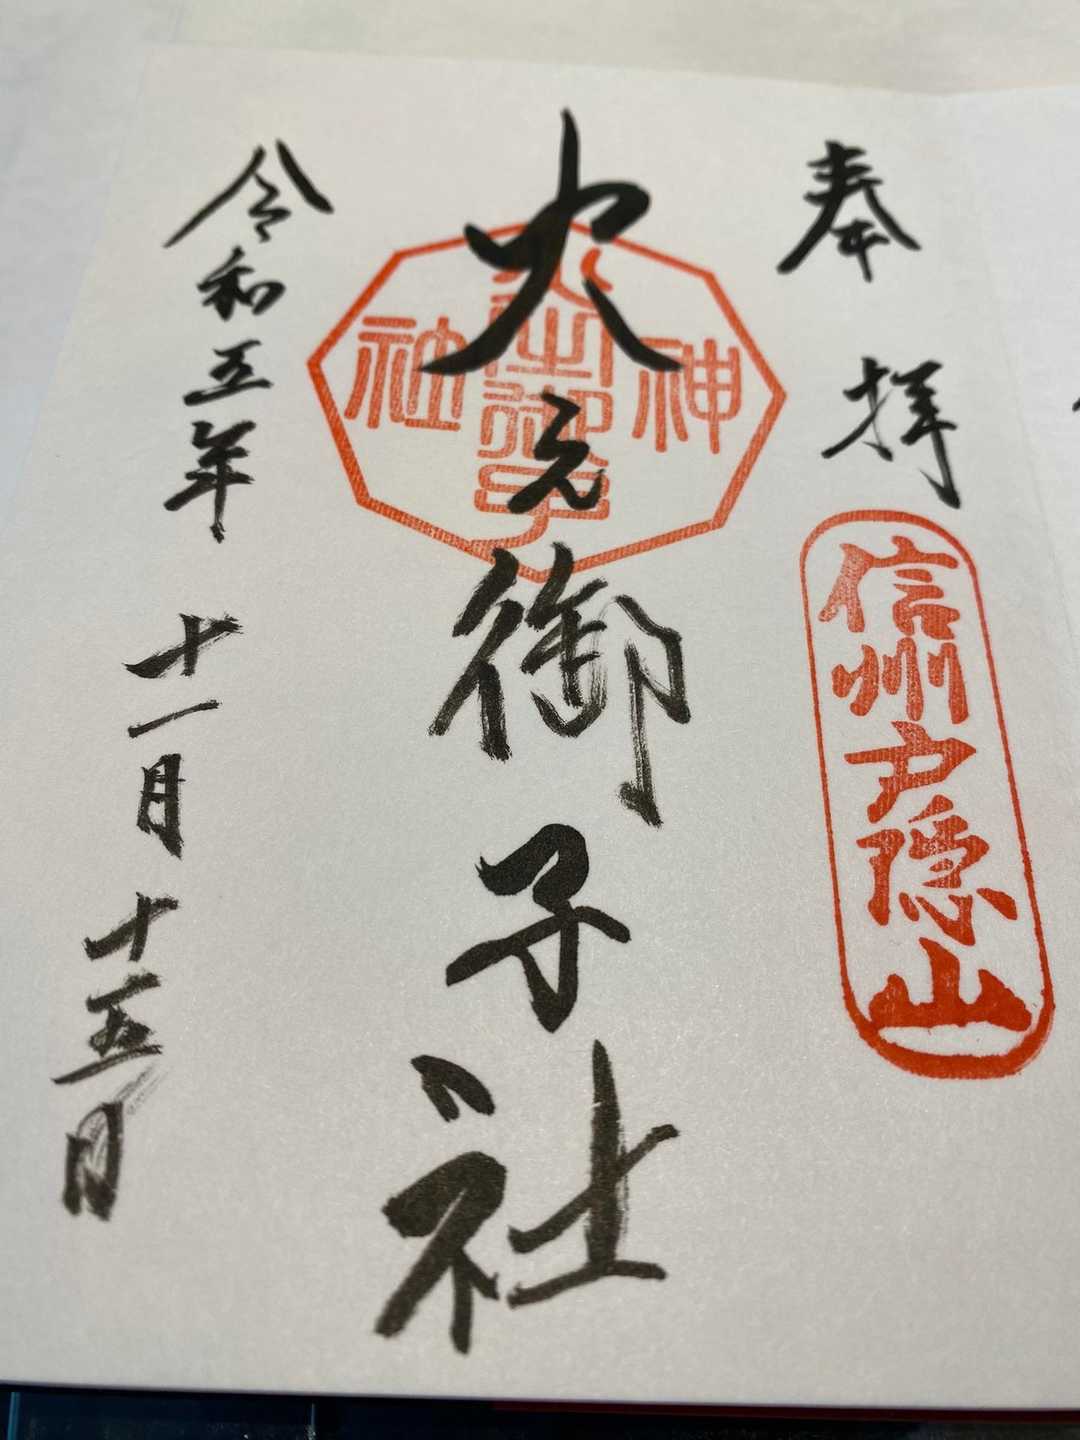 奉拝
信州戸隠山
火之御子社
神
火之御子
社
令和五年十一月十五日